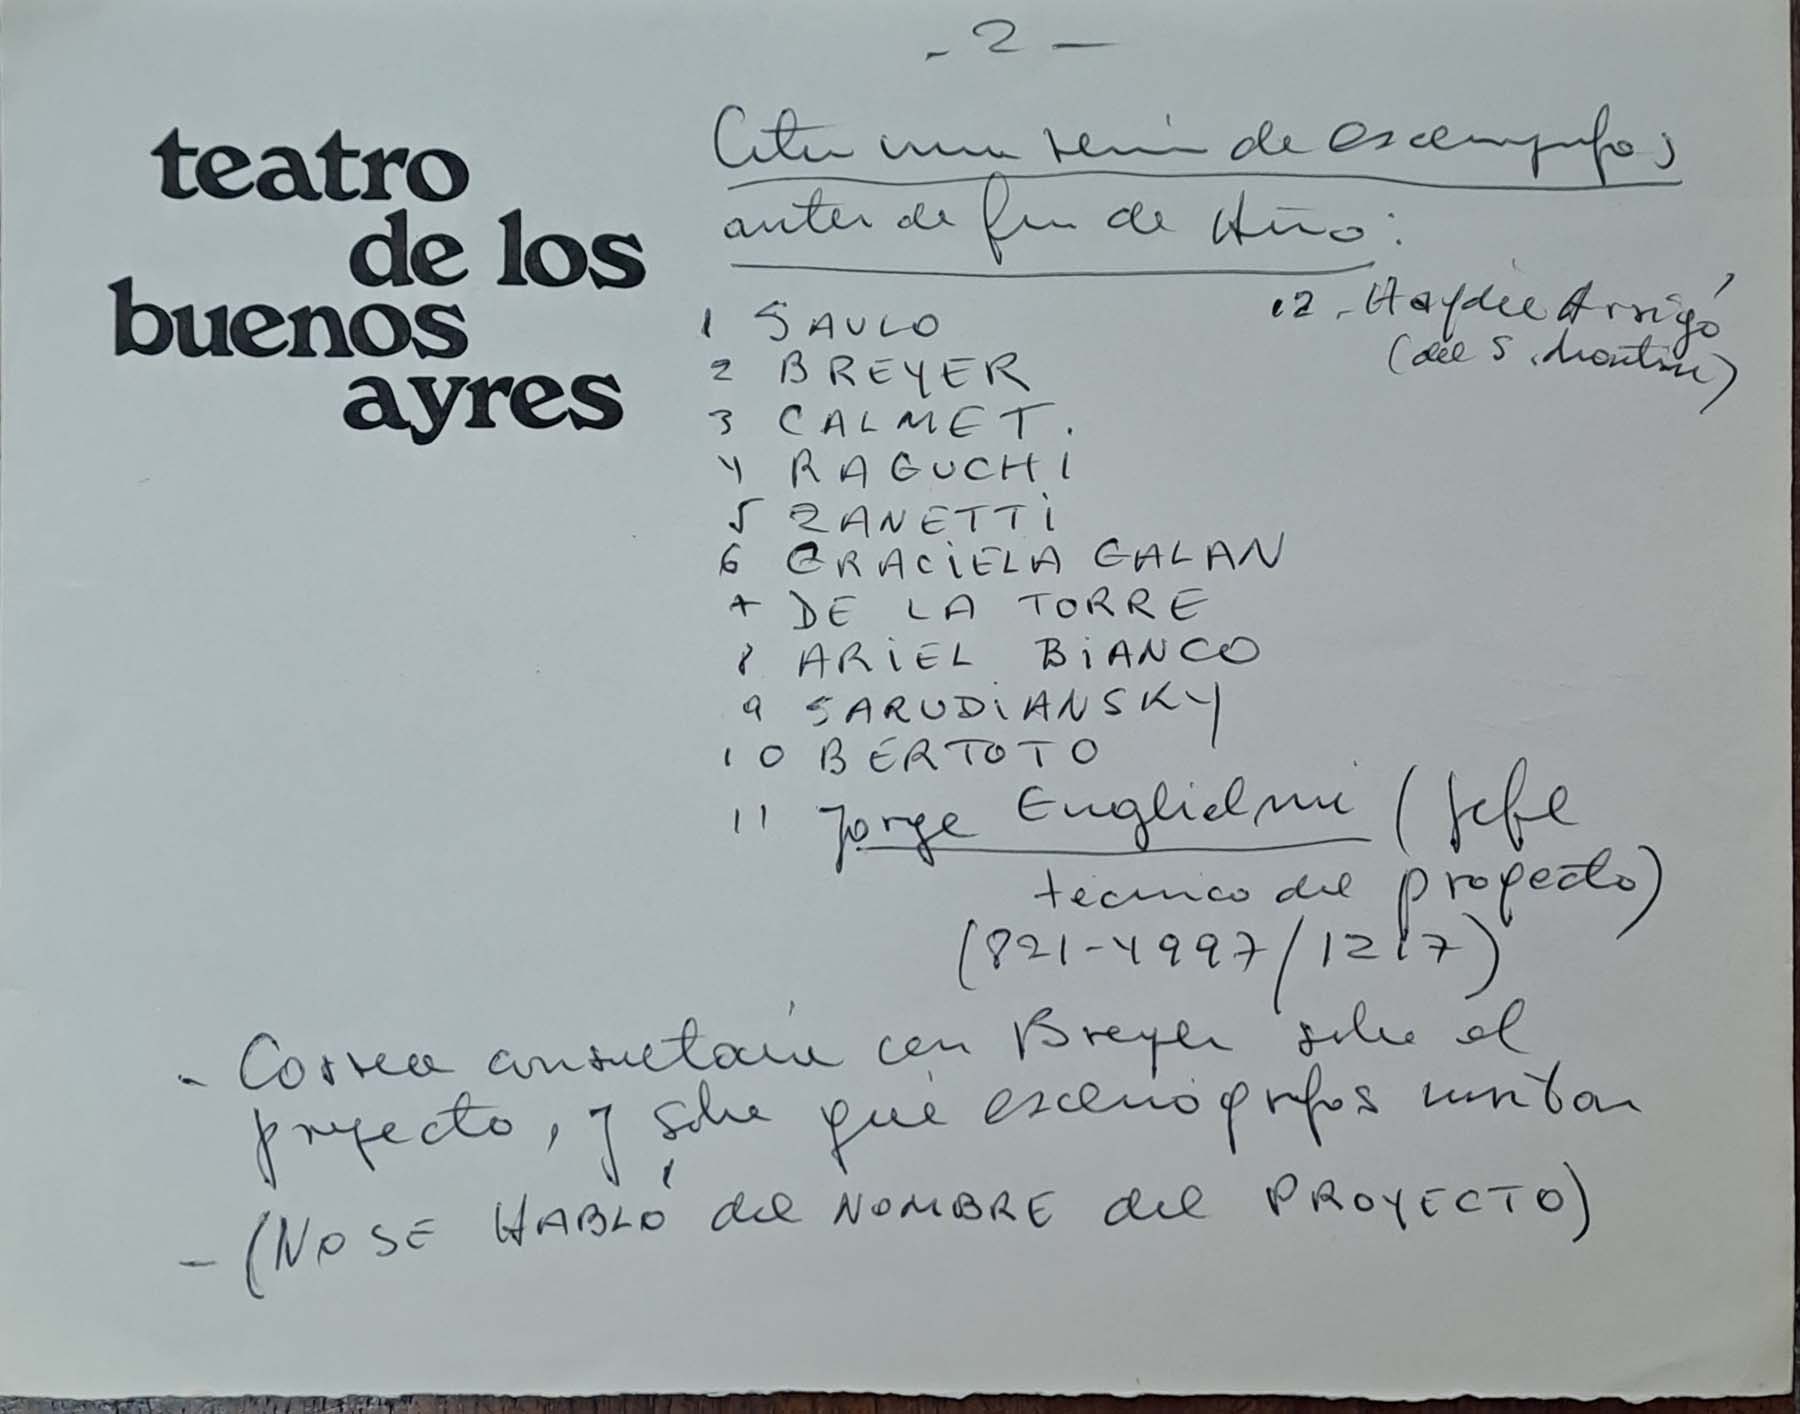 - 2 -
teatro
de los
buenos
ayres
Citar una de escenógrafos
antes de fin de Año:
1 SAULO
2 BREYER
3 CALMET.
4 RAGUCHI
5 ZANETTI
6 GRACIELA GALAN
7 DE LA TORRE
8 ARIEL BIANCO
9 SARUDIANSKY
10 BERTOTO
11 Jorge (Jefe
técnico del proyecto)
(821-4997/1217)
12. Haydée Arrigó
(del S. Martín)
- Correa consultaría con Breyer sobre el
proyecto, y sobre qué escenógrafos
- (NO SE HABLÓ del NOMBRE del PROYECTO)